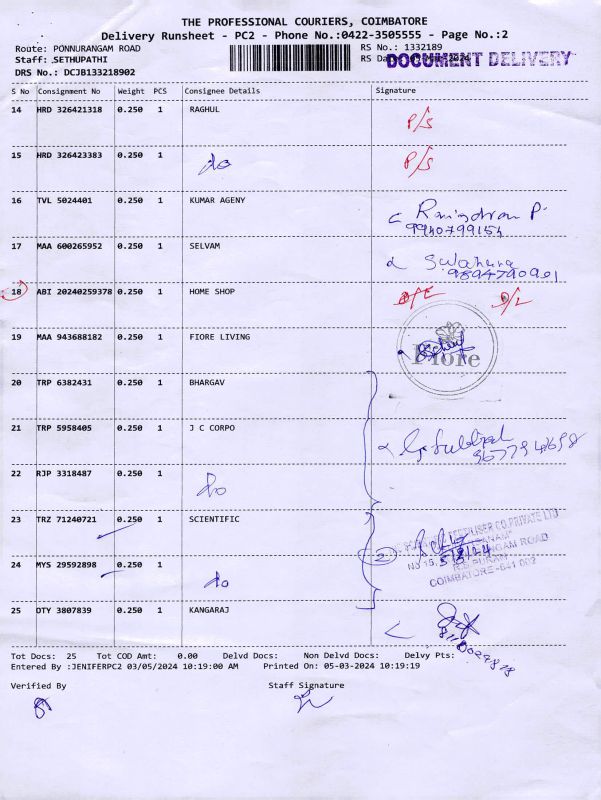 THE PROFESSIONAL COURIERS, COIMBATORE
Delivery Runsheet - PC2 - Phone No.:0422-3505555 - Page No.:2
Route: PONNURANGAM ROAD RS No.: 1332189
Staff: SETHUPATHI RS Da
DOCUMENT DELIVERY
DRS No.: DCJB133218902
S No Consignment No Weight PCS Consignee Details Signature
14 HRD 326421318 0.250 1 RAGHUL P/S
15 HRD 326423383 0.250 1 do P/S
16 TVL 5024401 0.250 1 KUMAR AGENY
9940799154
17 MAA 600265952 0.250 1 SELVAM
9894790901
18 ABI 20240259378 0.250 1 HOME SHOP D/L
19 MAA 943688182 0.250 1 FIORE LIVING
Fiore
20 TRP 6382431 0.250 1 BHARGAV
21 TRP 5958405 0.250 1 J C CORPO
22 RJP 3318487 0.250 1 do
23 TRZ 71240721 0.250 1 SCIENTIFIC
CO.PRIVATE LTD
2
5/3/24
24 MYS 29592898 0.250 1 do
COIMBATORE-641 002
25 OTY 3807839 0.250 1 KANGARAJ
Tot Docs: 25 Tot COD Amt: 0.00 Delvd Docs: Non Delvd Docs: Delvy Pts:
Entered By :JENIFERPC2 03/05/2024 10:19:00 AM Printed On: 05-03-2024 10:19:19
Verified By Staff Signature